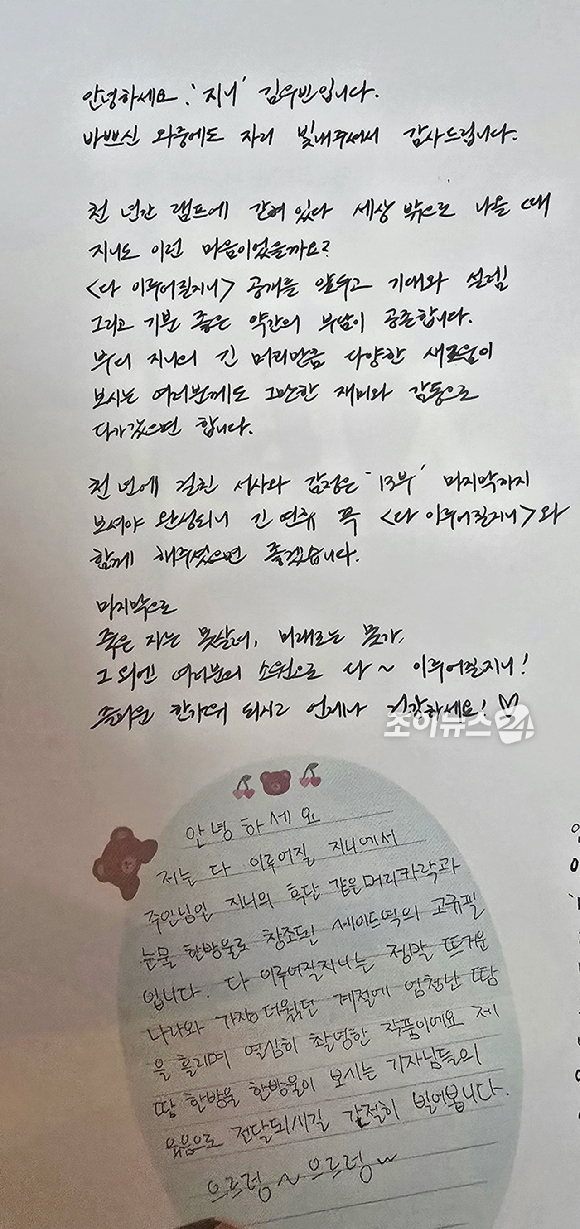 안녕하세요. '지니' 김우빈입니다.
바쁘신 와중에도 자리 빛내주셔서 감사드립니다.
천 년간 램프에 갇혀 있다 세상 밖으로 나올 때
지니도 이런 마음이었을까요?
<다 이루어질지니> 공개를 앞두고 기대와 설렘
그리고 기분 좋은 약간의 부담이 공존합니다.
부디 지니의 긴 머리만큼 다양한 새로움이
보시는 여러분께도 그만한 재미와 감동으로
다가갔으면 합니다.
천 년에 걸친 서사와 감정은 '13부' 마지막까지
보셔야 완성되니 긴 연휴 꼭 <다 이루어질지니>와
함께 해주셨으면 좋겠습니다.
마지막으로
죽은 자는 못살려, 미래로는 못가,
그 외엔 여러분의 소원으로 다~ 이루어질지니!
즐거운 한가위 되시고 언제나 건강하세요!
조이뉴스24
안녕하세요
저는 다 이루어질 지니에서
주인님인 지니의 흑단 같은 머리카락과
눈물 한방울로 창조된 세이드역의 고규필
입니다. 다 이루어질지니는 정말 뜨거운
나라와 가장 더웠던 계절에 엄청난 땀
을 흘리며 열심히 촬영한 작품이에요 제
땀 한방울 한방울이 보시는 기자님들의
웃음으로 전달되시길 간절히 빌어봅니다.
으르렁~ 으르렁~